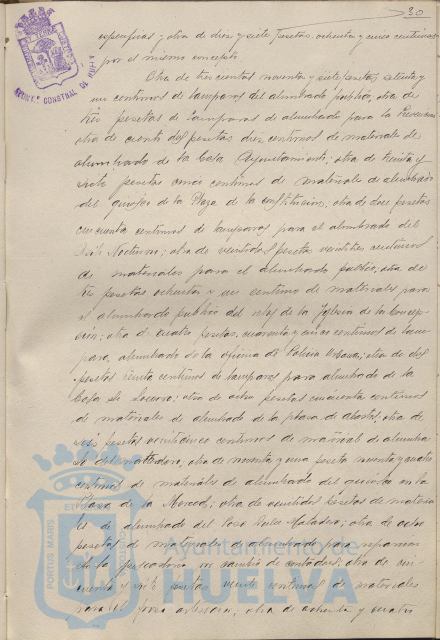 30
especificas; otra de diez y siete pesetas ochenta y cinco centimos
por el mismo concepto.
Otra de trescientas noventa y siete pesetas setenta y
un centimos de lamparas del alumbrado publico, otra de
tres pesetas de lamparas de alumbrado para la
otra de ciento dos pesetas diez centimos de materiales de
alumbrado de la Casa Ayuntamiento; otra de treinta y
siete pesetas once centimos de materiales de alumbrado
del quiosco de la Plaza de la Constitucion; otra de doce pesetas
cincuenta centimos de lamparas para el alumbrado del
Nocturno; otra de veintidos pesetas veintitres centimos
de materiales para el alumbrado publico; otra de
tres pesetas ochenta y un centimo de materiales para
el alumbrado publico del reloj de la Iglesia de la Concep-
cion; otra de cuatro pesetas cuarenta y cinco centimos de lam-
para, alumbrado de la oficina de Policia Urbana; otra de dos
pesetas treinta centimos de lamparas para alumbrado de la
Casa de Socorro; otra de ocho pesetas cuarenta centimos
de materiales de alumbrado de la plaza de abastos; otra de
seis pesetas veinticinco centimos de material de alumbra-
do del matadero; otra de noventa y una peseta noventa y cuatro
centimos de materiales de alumbrado del quiosco en la
Plaza de la Merced; otra de veintidos pesetas de materia-
les de alumbrado del Matadero; otra de ocho
pesetas de materiales de alumbrado para reparacion
en la pescaderia en cambio de contador; otra de cin-
cuenta y seis pesetas veinte centimos de materiales
para el pozo artesiano; otra de ochenta y cuatro
PORTUS MARIS
ET
Ayuntamiento de
HUELVA